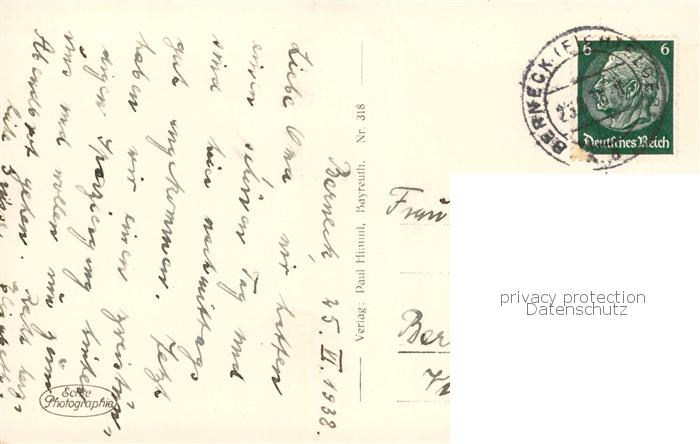 Berneck 25. II. 1938.
Liebe Oma wir hatten
einen schönen Tag und
sind hier nachmittags
gut angekommen. Jetzt
haben wir einen
Spaziergang hinter
uns und wollen nun zum
Abendbrot gehen. Recht herz-
lich grüßt
Verlag: Paul Himml, Bayreuth. Nr. 318
Echte
Photographie
BERNECK
6 6
Deutsches Reich
Frau
Ber
privacy protection
Datenschutz